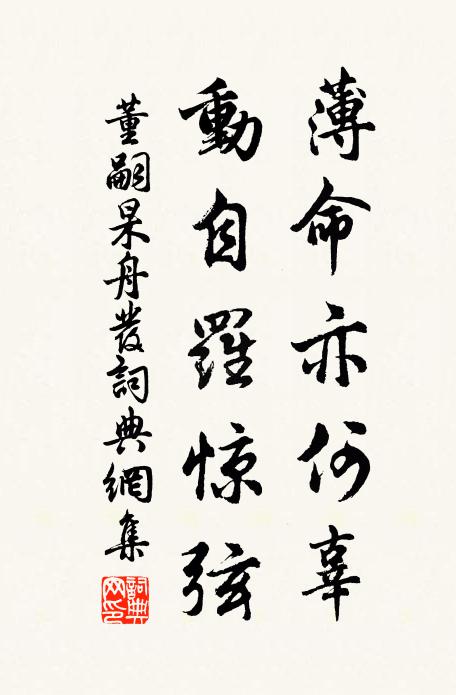 薄命亦何辜
動自羅惊弦
董嗣杲舟發詞典網集
詞典網印